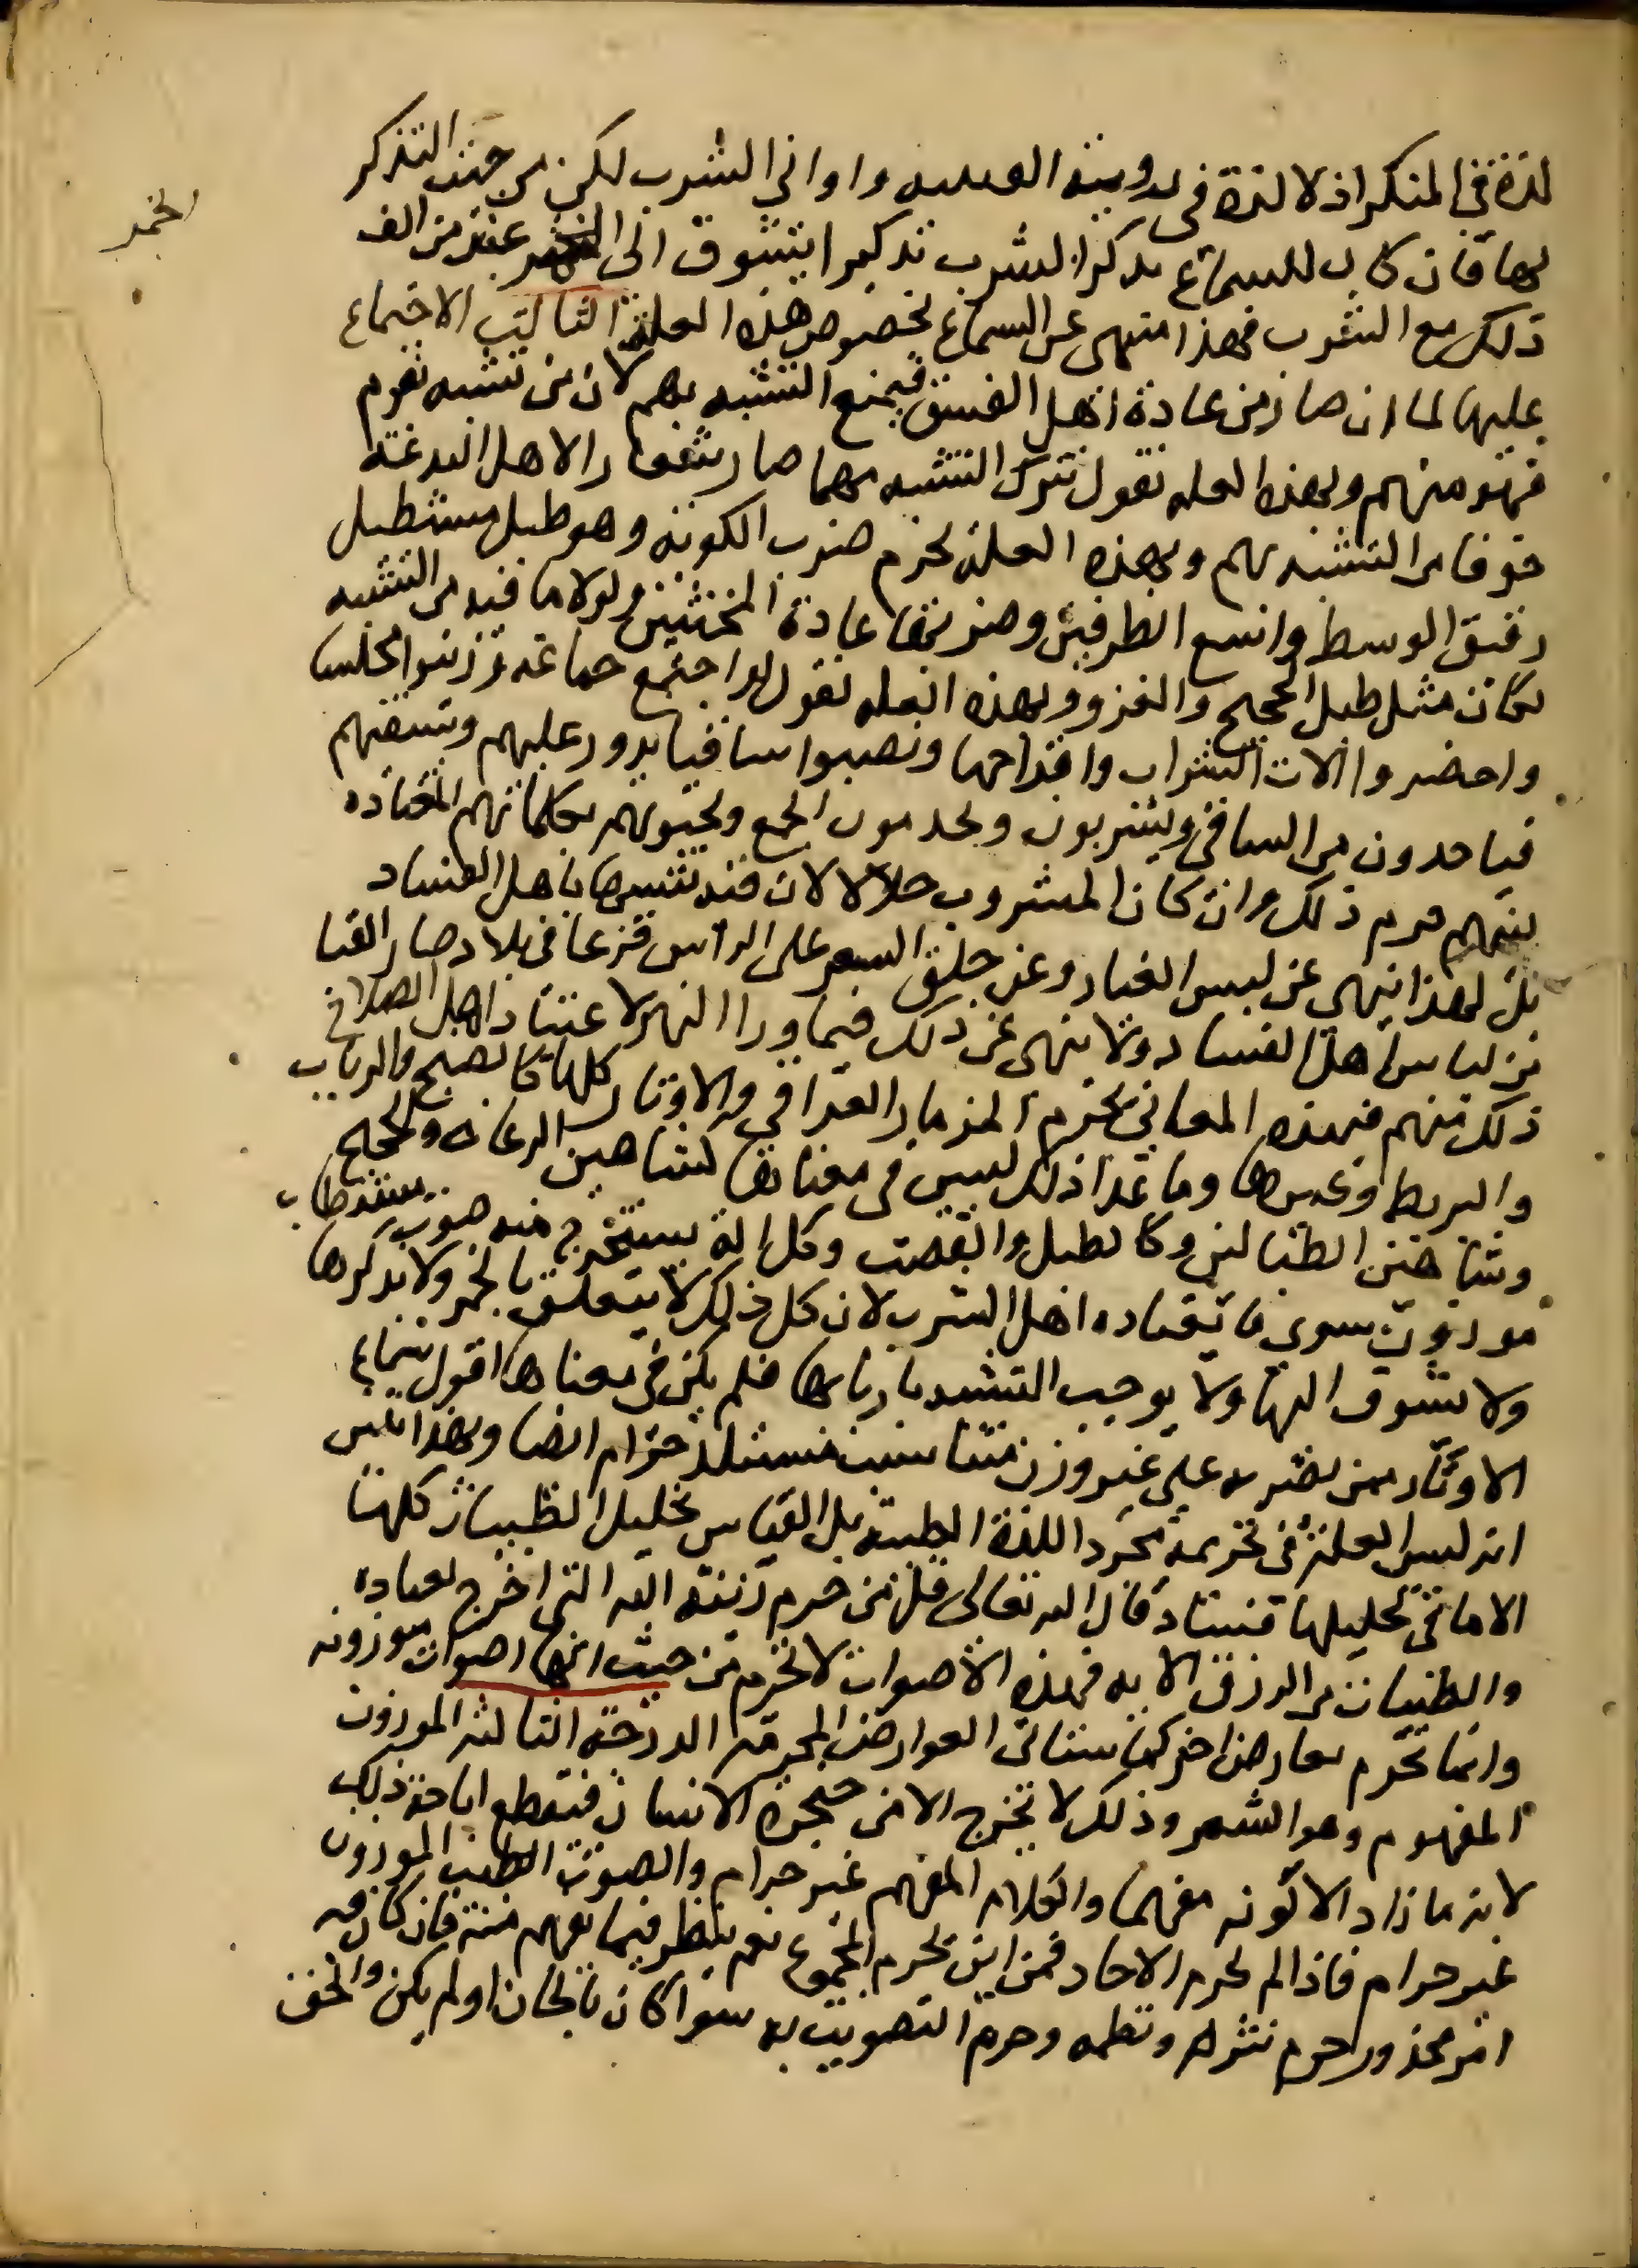 لذة في المنكر اذ لا لذة في روية القنينه واواني الشرب لكن من حيث التذكر
بها فان كان السماع يذكر الشرب تذكيرا يتشوق الى الخمر عند من الف
الخمر
ذلك مع الشرب فهذا منهى عن السماع لخصوص هذه العلة الثالث الاجتماع
عليها لما ان صار من عادة اهل الفسق فيمنع التشبه بهم لان من تشبه بقوم
فهو منهم وبهذه العله نقول بترك التشبه مهما صار شعارا لاهل البدعة
خوفا من التشبه بهم وبهذه العلة يحرم ضرب الكوبة وهو طبل مستطيل
دقيق الوسط واسع الطرفين وضربها عادة المخنثين ولولا ما فيه من التشبه
لكان مثل طبل الحجيج والغزو وبهذه العله نقول لو اجتمع جماعة وزينوا مجلسا
واحضروا الات الشراب واقداحها ونصبوا ساقيا يدور عليهم ويسقيهم
فياخذون من الساقي ويشربون ويحيونهم بكلماتهم المعتاده
بينهم حرم ذلك وان كان المشروب حلالا لان في هذا تشبها باهل الفساد
بل لهذا ينهى عن لبس القبا وعن حلق الشعر على الراس قزعا في بلاد صار القبا
من لباس اهل الفساد ولا ينهى عن ذلك فيما ورا النهر لاعتياد اهل الصلاح
ذلك منهم فبهذه المعاني يحرم المزمار العراقي والاوتار كلها كالصنج والرباب
والبربط وغيرها وما عدا ذلك ليس في معناها كشاهين الرعاه والحجيج
وشاهين الطبالين وكالطبل والقصب وكل الة يستخرج منه صوت مستطاب
موزون سوى ما يعتاده اهل الشرب لان كل ذلك لا يتعلق بالخمر ولا يذكرها
ولا يشوق اليها ولا يوجب التشبه باربابها فلم يكن في معناها اقول سماع
الاوتار ممن يضربها على غير وزن متناسب مستلذ حرام ايضا وبهذا يتبين
انه ليس العلة في تحريمه مجرد اللذة الطيبة بل القياس تحليل الطيبات كلها
الا ما في تحليلها فساد قال الله تعالى قل من حرم زينة الله التي اخرج لعباده
والطيبات من الرزق الايه فهذه الاصوات لا تحرم من حيث انها اصوات موزونه
وانما تحرم بعارض اخر كما سياتى العوارض المحرمه الدرجة الثالثه الموزون
المفهوم وهو الشعر وذلك لا تخرج الا من حنجرة الانسان فيقطع اباحة ذلك
لانه ما زاد الا كونه مفهما والكلام المفهم غير حرام والصوت الطيب الموزون
غير حرام فاذا لم يحرم الاحاد فمن اين يحرم المجموع نعم ينظر فيما يفهم منه فان كان فيه
امر محذور حرم نثره ونظمه وحرم التصويت به سوا كان بالحان او لم يكن والحق